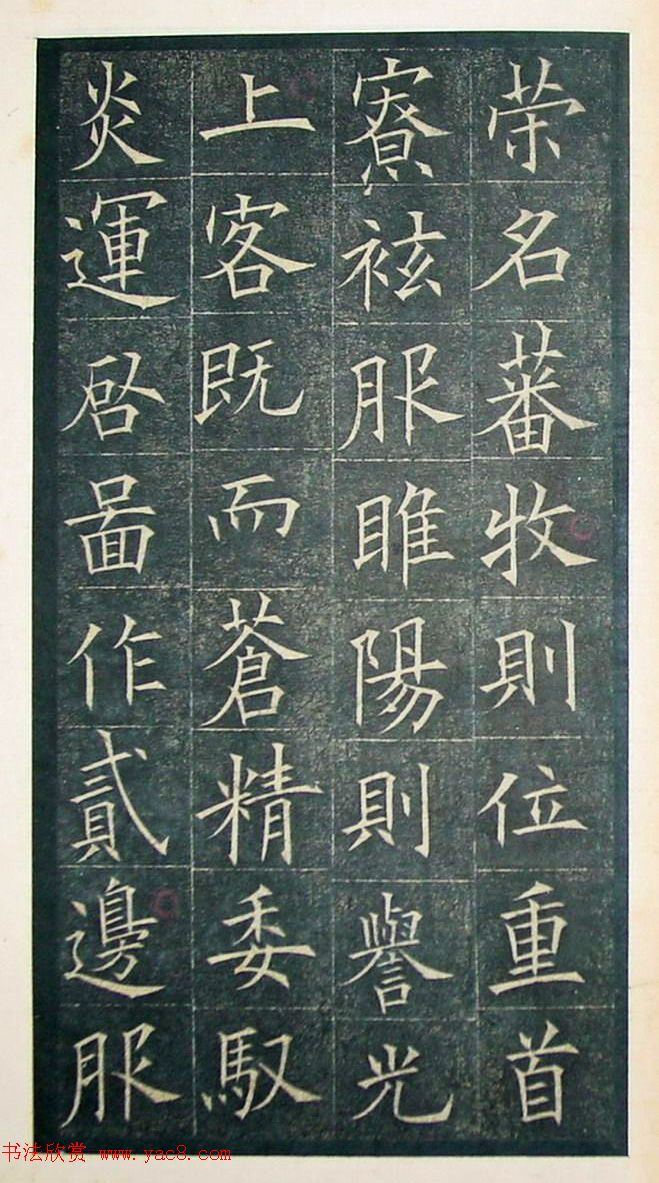 荣名蕃牧則位重首
寮袨服睢陽則譽光
上客既而蒼精委馭
炎運啓啚作貳邊服
书法欣赏 www.yac8.com